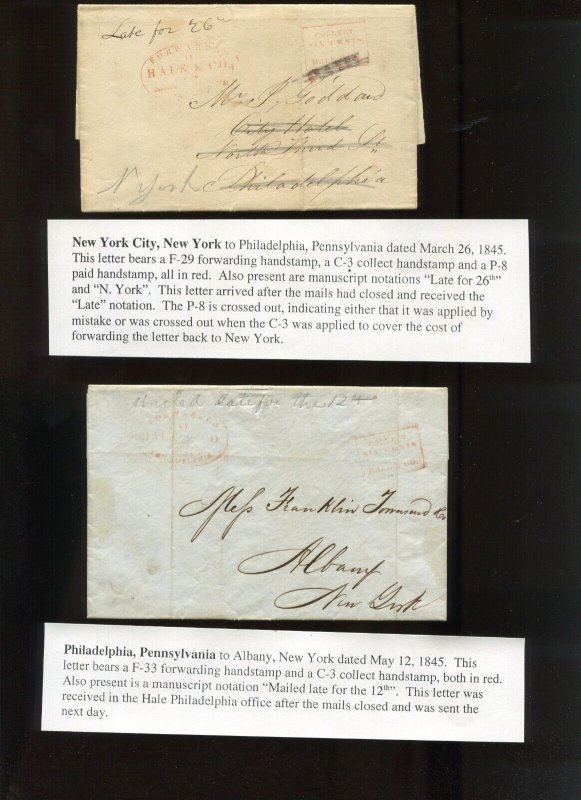 Late for 26th
FORWARDED
HALE & CO.
COLLECT
SIX CENTS
HALE & CO.
Mr. P. Goddard
City Hotel
North Third St.
N York Philadelphia
New York City, New York to Philadelphia, Pennsylvania dated March 26, 1845.
This letter bears a F-29 forwarding handstamp, a C-3 collect handstamp and a P-8
paid handstamp, all in red. Also present are manuscript notations “Late for 26th”
and “N. York”. This letter arrived after the mails had closed and received the
“Late” notation. The P-8 is crossed out, indicating either that it was applied by
mistake or was crossed out when the C-3 was applied to cover the cost of
forwarding the letter back to New York.
Mailed late for the 12th
COLLECT
SIX CENTS
HALE & CO.
Mess Franklin Townsend & Co
Albany
New York
Philadelphia, Pennsylvania to Albany, New York dated May 12, 1845. This
letter bears a F-33 forwarding handstamp and a C-3 collect handstamp, both in red.
Also present is a manuscript notation “Mailed late for the 12th”. This letter was
received in the Hale Philadelphia office after the mails closed and was sent the
next day.